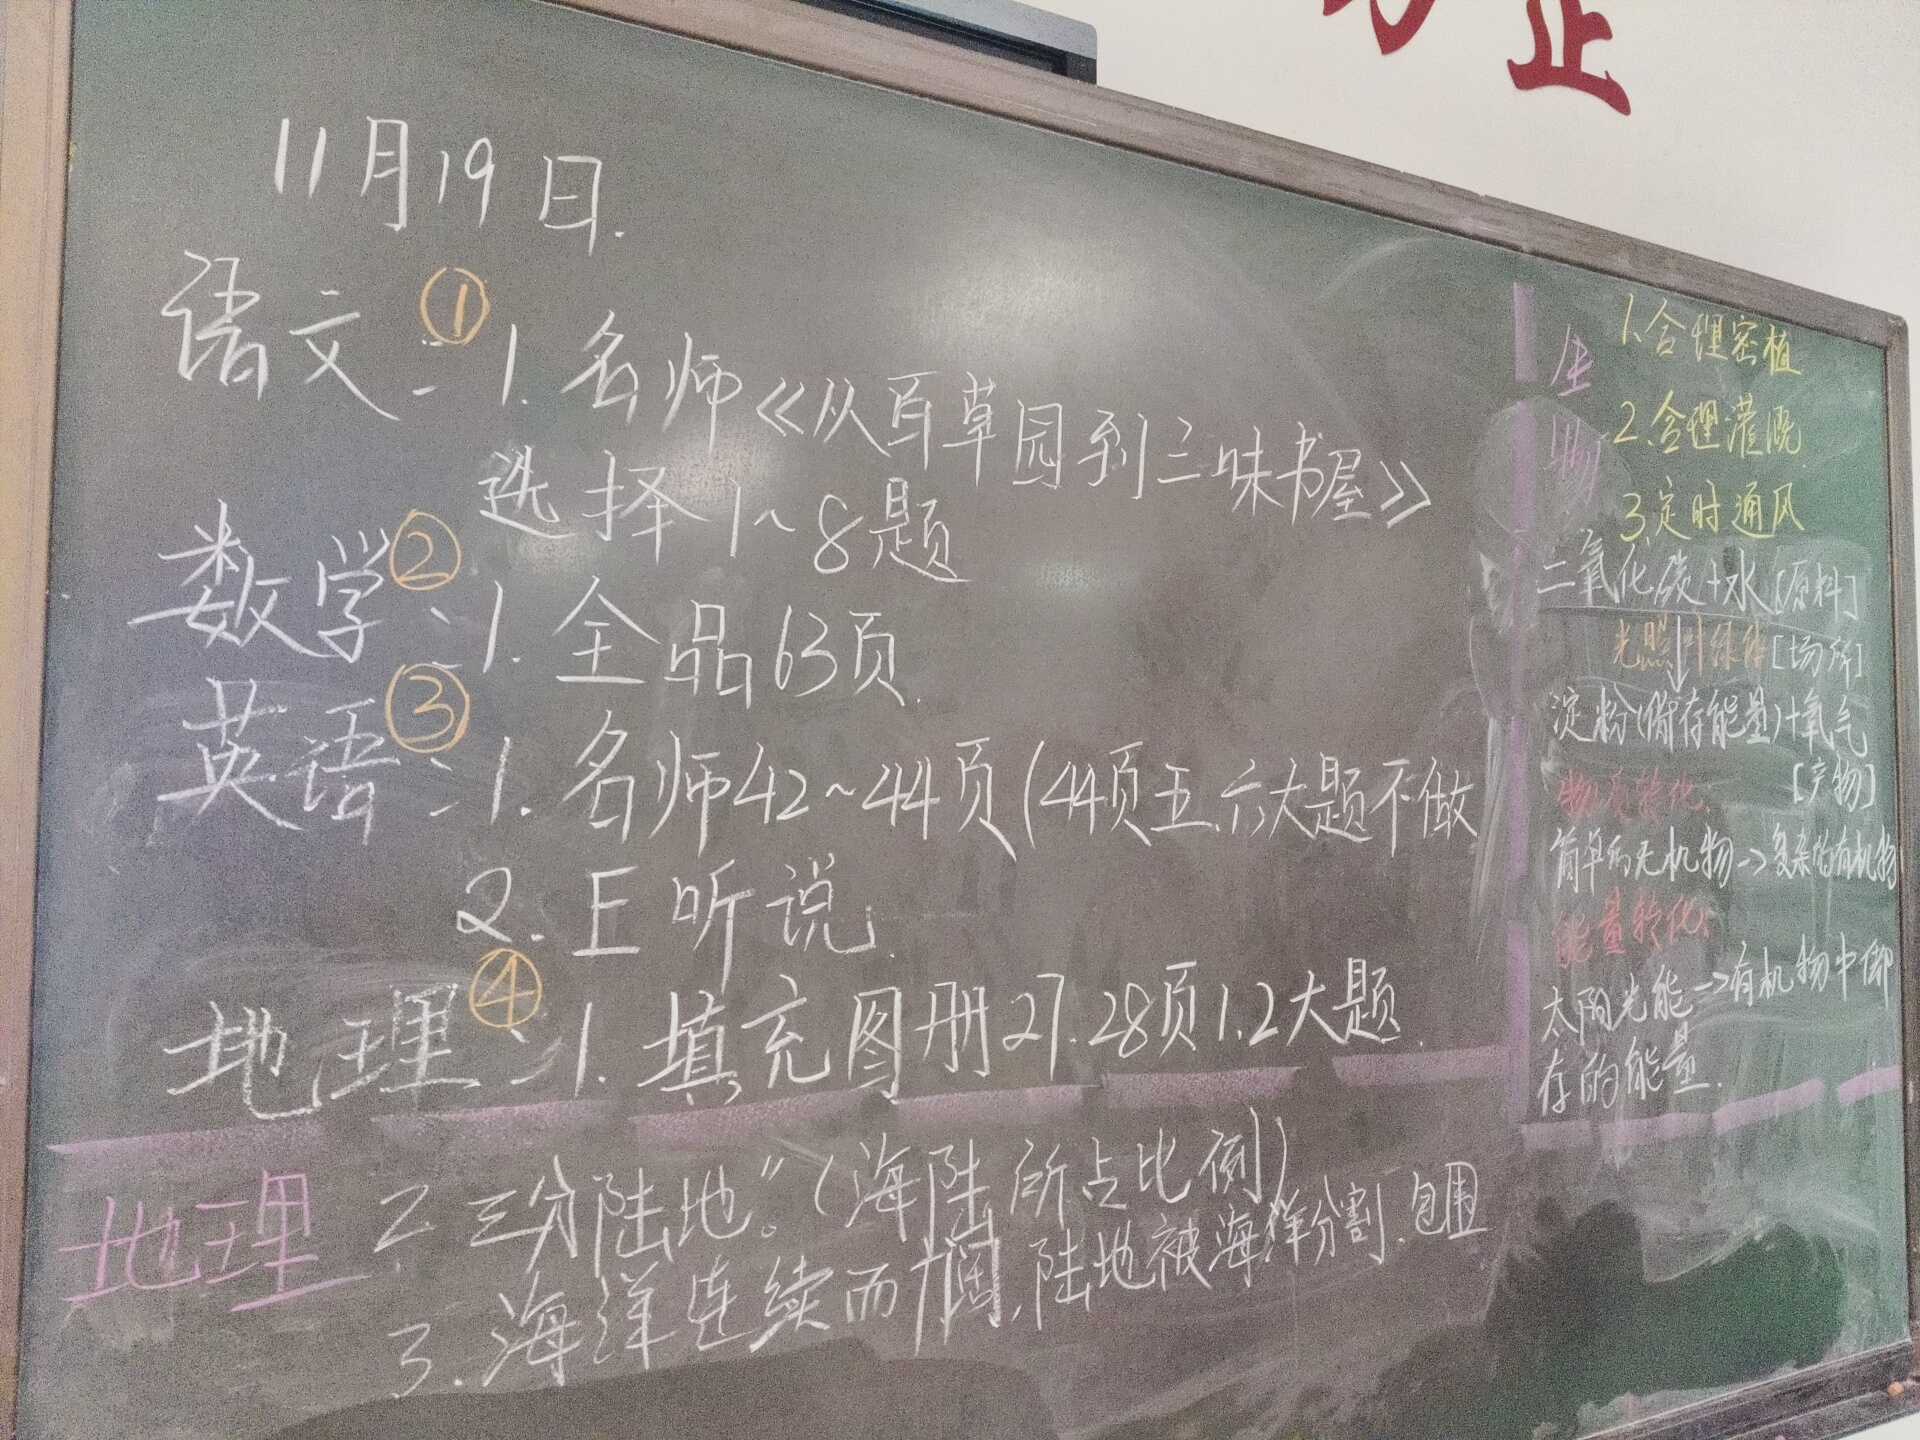 止
11月19日.
语文①: 1. 名师《从百草园到三味书屋》
选择1~8题
数学②: 1. 全品63页.
英语③: 1. 名师42~44页(44页五.六大题不做
2. E听说.
地理④: 1. 填充图册27.28页1.2大题.
生物
1.合理密植
2.合理灌溉
3.定时通风
二氧化碳+水[原料]
光照 绿体[场所]
淀粉(储存能量)+氧气
[产物]
物质转化.
简单的无机物->复杂的有机物
能量转化.
太阳光能->有机物中储
存的能量.
地理 2. 三分陆地。"(海陆所占比例)
3. 海洋连续而广阔,陆地被海洋分割.包围